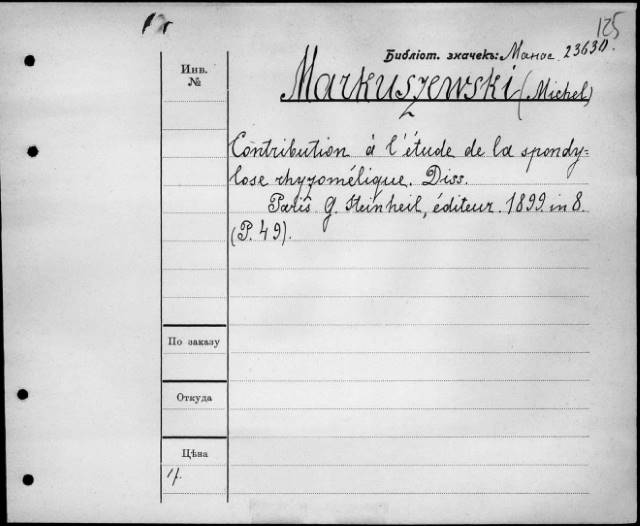 125
Библіот. значекъ: Манас 23630.
Инв.
№
Markuszewski (Michel)
Contribution à l'étude de la spondy=
lose rhyzomélique. Diss.
Paris G. Steinheil, éditeur. 1899. in 8.
(P. 49).
По заказу
Откуда
Цѣна